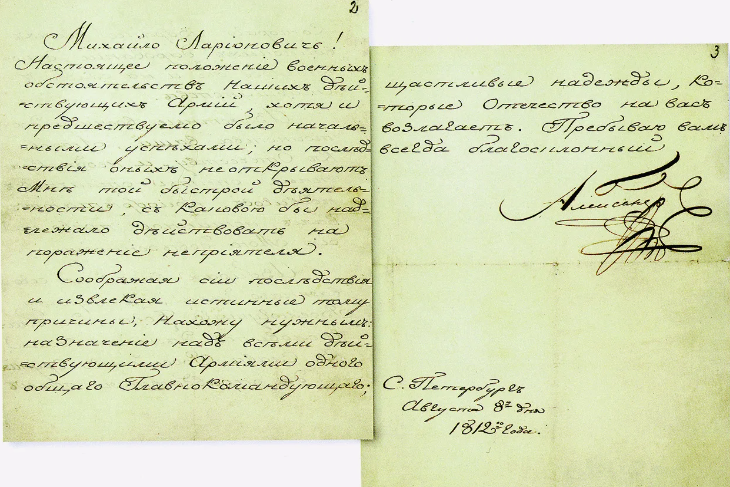 2
Михайло Ларіоновичъ!
Настоящее положеніе военныхъ
обстоятельствъ нашихъ дѣй-
=ствующихъ Армій, хотя и
предшествуемо было началь-
=ными успѣхами; но послѣд-
=ствія оныхъ неоткрываютъ
Мнѣ той быстрой дѣятель-
=ности, съ каковою бы над-
=лежало дѣйствовать на
пораженіе непріятеля.
Соображая сіи послѣдствія
и извлекая истинныя тому
причины, нахожу нужнымъ
назначеніе надъ всѣми дѣй-
=ствующими Арміями одного
общаго Главнокомандующаго;
3
щастливые надежды, ко-
=торые Отечество на васъ
возлагаетъ. Пребываю вамъ
всегда благосклонный
Александръ
С. Петербургъ
Августа 8го дня
1812го года.